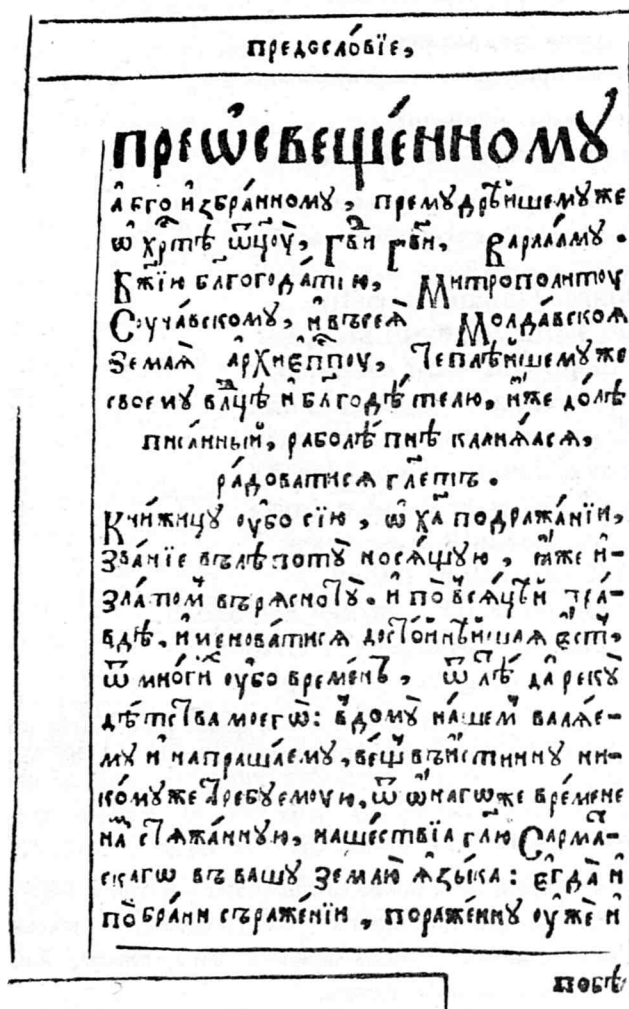 предсло́вїе,
преѡ҆свеще́нному
а҆ бг҃о и҆збра́нному, премꙋдрѣ́йшемꙋ же
ѡ҆ хрⷭ҇тѣ ѿцоу̀, гⷭ҇ви гⷭ҇ви, Варлаа́мꙋ.
Бж҃їю блг҃ода́тїю, Митрополитоу
Соуча́вскомꙋ, и҆ въсеѧ̀ Молда́вскоѧ
Землѧ̀ а҆рхїеп҃поу, Теплѣ́йшемꙋ же
своемꙋ влⷣцѣ и҆ бл҃годѣ́телю, и҆́же до́лѣ
писа́нный, раболѣ́пнѣ кланѧ́ѧсѧ,
ра́доватисѧ гл҃етъ.
Кни́жицꙋ оу҆бо сїю, ѡ҆ х҃а подража́нїи,
Зва́нїе въ лѣпотꙋ̀ носѧ́щꙋю, ꙗ҆́же и҆-
зла́том въ рѧснотꙋ̀. и҆ по всѧ́цѣй пра́-
вдѣ. и҆меноватисѧ досто́йнѣйшаѧ є҆́стⸯ,
ѿ мно́гиⷯ оу҆́бо време́нъ, ѿ лѣ́ⷮ да̀ рекꙋ̀
дѣ́тства моегѡ̀: в̾ домꙋ̀ на́шеⷨ валѧ́е-
мꙋ и҆ напраща́емꙋ, ве́щⸯ въи́стиннꙋ ни-
ко́мꙋже требꙋемоую, ѿ ѻ҆́нагѡ же вре́мене
наⷨ стѧжа́ннꙋю, наше́ствїа гл҃ю Сарма́ⷮ-
скагѡ въ вашꙋ землю̀ ꙗ҆зы́ка: є҆гда̀ и҆
по бра́ни сраже́нїи, пораже́ннꙋ оу҆́же и҆
побѣ